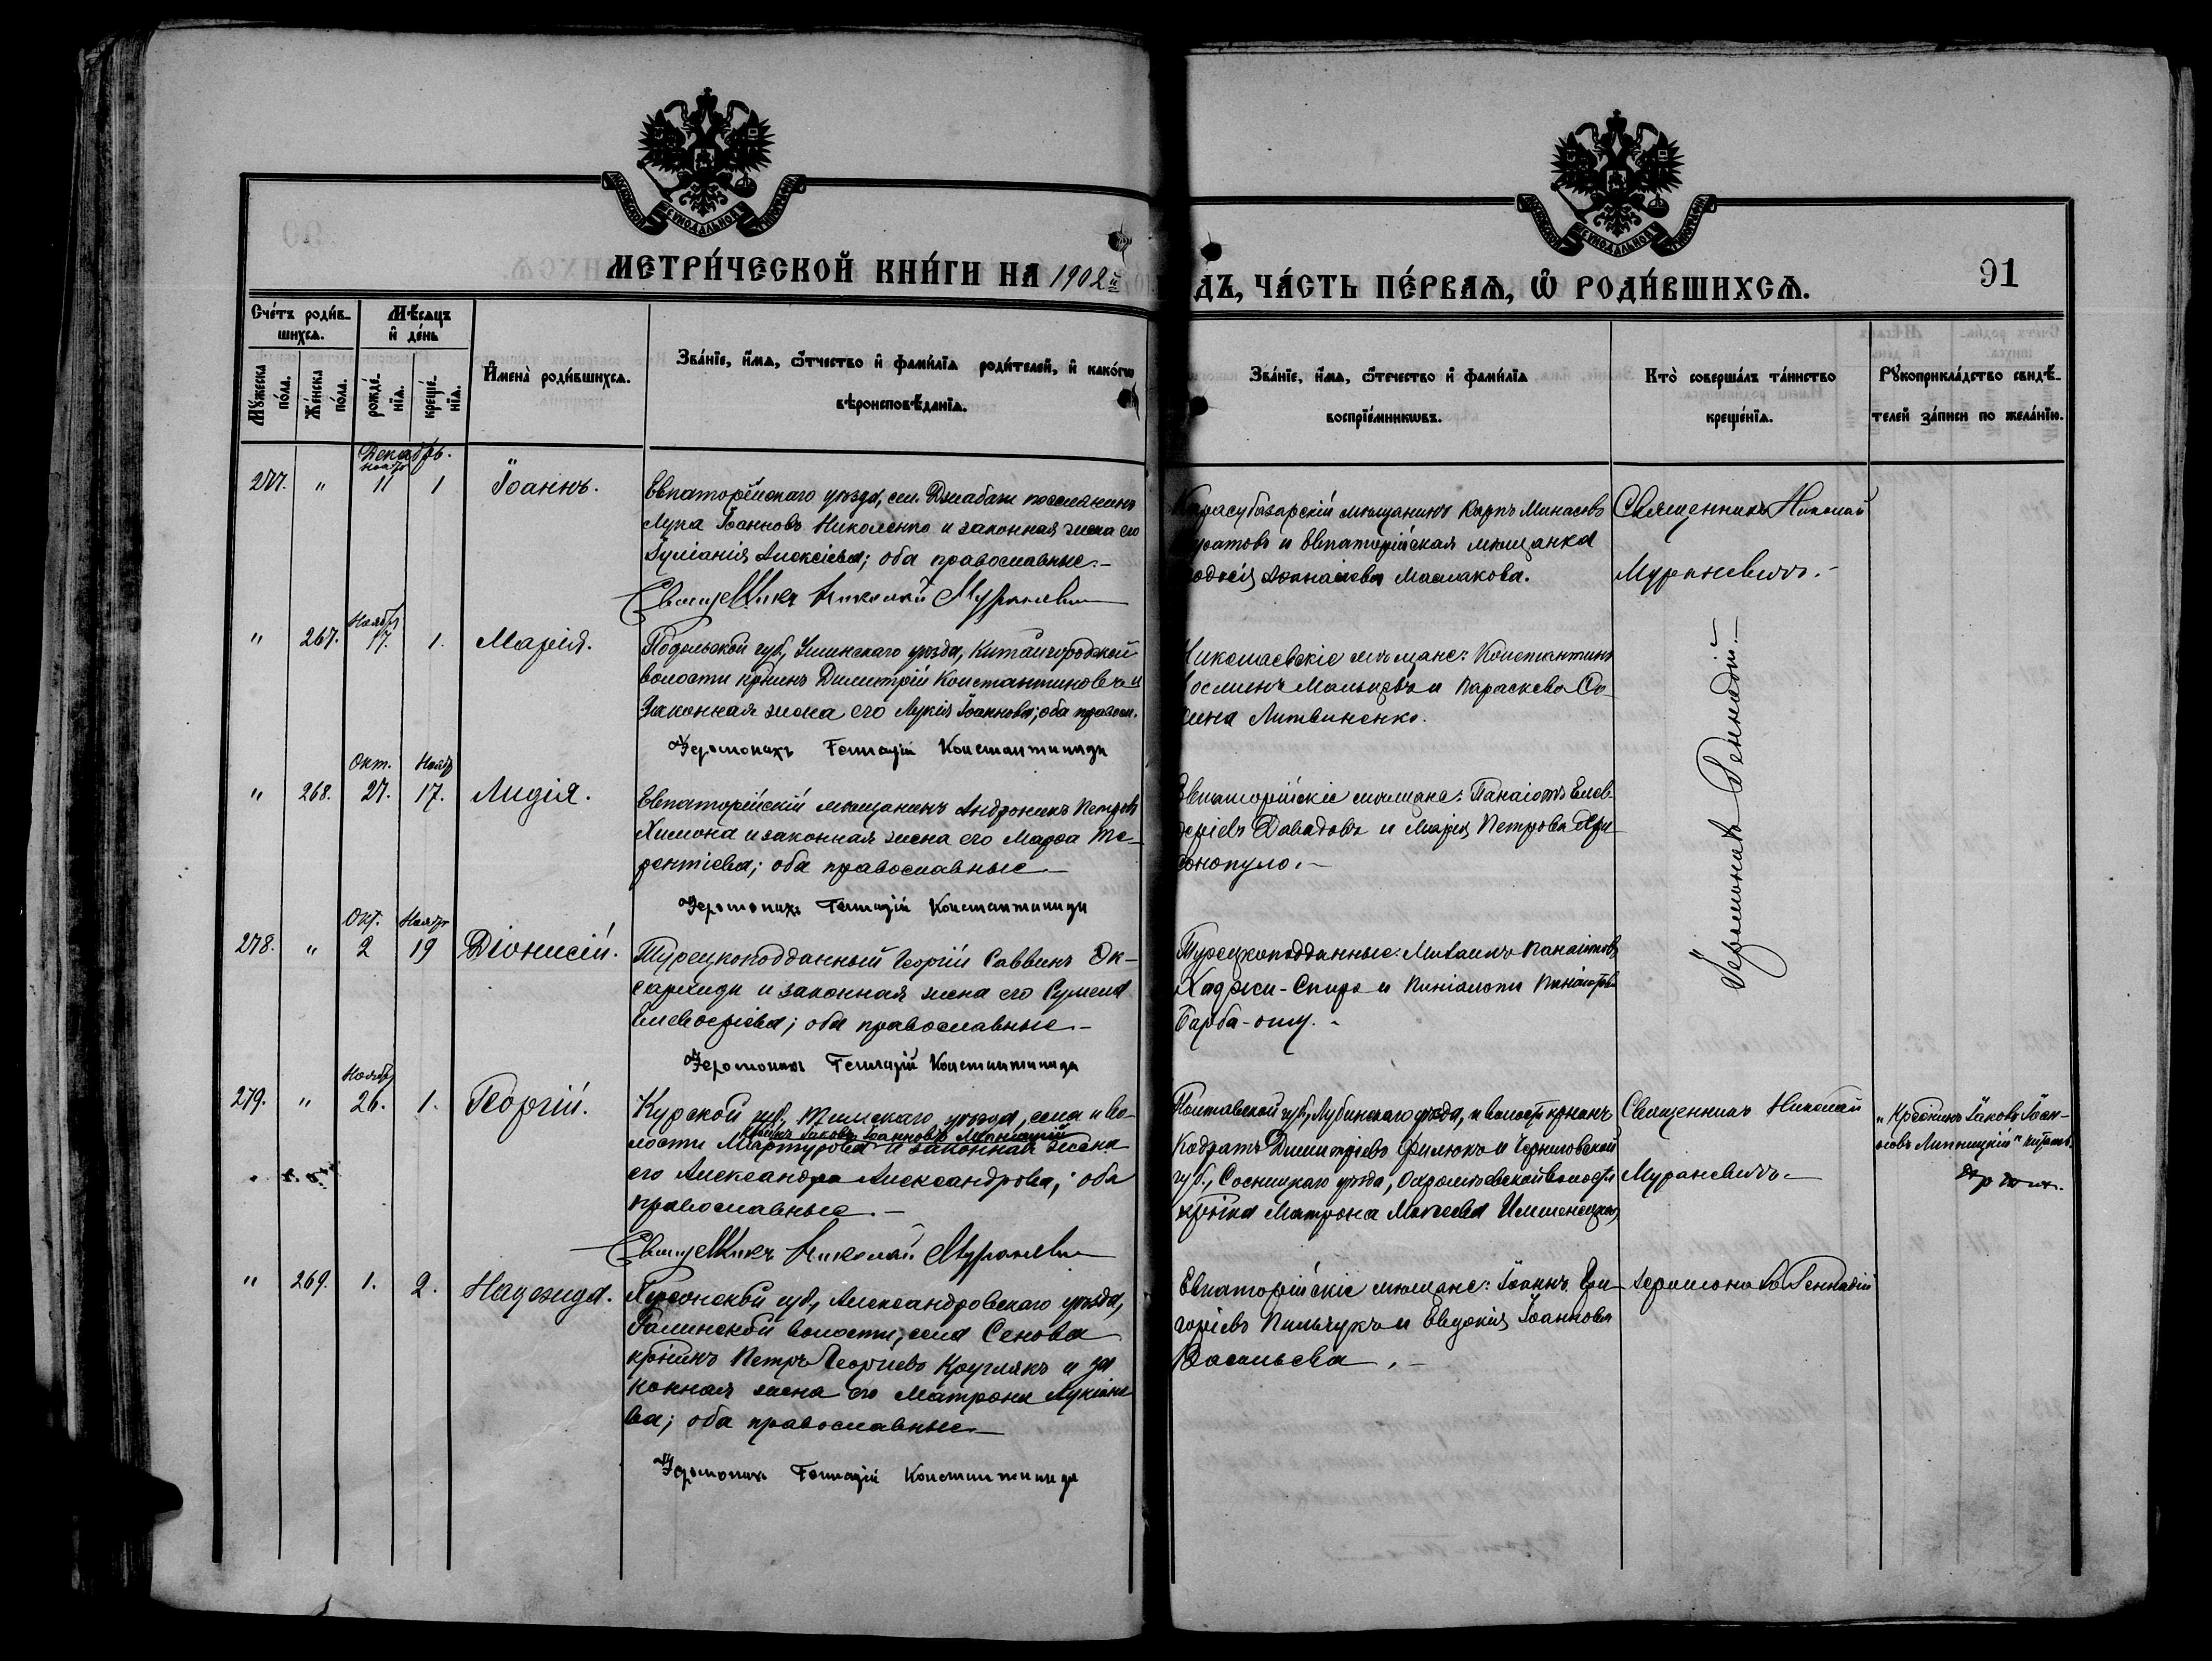 МЕТРИ́ЧЕСКОЙ КНИ́ГИ НА 1902й
ДЪ, ЧА́СТЬ ПЕ́РВАѦ, Ѡ РОДИ́ВШИХСѦ.
91
Сче́тъ роди́в-
шихсѧ.
Мꙋ́жеска по́ла.
Же́нска по́ла.
Мѣ́сѧцъ
и҆ де́нь
рожде́-нїѧ.
креще́-нїѧ.
И҆мена̀ роди́вшихсѧ.
Зва́нїе, и҆́мѧ, ѻ҆́тчество и҆ фами́лїѧ роди́телей, и҆ како́гѡ
вѣроисповѣ́данїѧ.
Зва́нїе, и҆́мѧ, ѻ҆́течество и҆ фами́лїѧ
воспрїе́мникѡвъ.
Кто̀ соверша́лъ та́инство
креще́нїѧ.
Рꙋкоприкла́дство свидѣ́-
телей за́писи по жела́нїю.
Декабрь.
Ноябр
277. " 11 1 Іоаннъ.
Евпаторійскаго уѣзда, сел. Джабаш поселянинъ
Лука Іоанновъ Николенко и законная жена его
Іуліанія Алексіева; оба православные.–
Священникъ Николай Мураневич
Карасубазарскій мѣщанинъ Карпъ Минаевъ
и Евпаторійская мѣщанка
Аѳанасіева Маслакова.
Священникъ Николай
Мураневичъ.–
Ноябр
" 267. 17. 1. Марія.
Подольской губ., Ушинскаго уѣзда, Китайгородской
волости кр-нинъ Димитрій Константиновъ и
Законная жена его Лукія Іоаннова; оба правосл.
Іеромонахъ Геннадій Константиниди
Николаевскіе мѣщане: Константинъ
Мальцевъ и Параскева
Литвиненко.
Іеромонахъ Геннадій.–
Окт. Ноябр
" 268. 27. 17. Лидія.
Евпаторійскій мѣщанинъ Андроникъ Петровъ
Химона и законная жена его Марѳа Те-
рентіева; оба православные.–
Іеромонахъ Геннадій Константиниди
Евпаторійскіе мѣщане: Панаіотъ Елев-
ѳеріевъ Давадовъ и Марія Петрова
Окт. Ноябр
278. " 2 19 Діонисій.
Турецкоподданный Георгій Саввинъ
и законная жена его
Елевѳеріева; оба православные.–
Іеромонахъ Геннадій Константиниди
Турецкоподданные: Михаилъ Панаіотовъ
Хаджи-Спиро и Панаіотовъ
Барба-оглу. –
Ноябр
279. " 26. 1. Георгій.
Курской губ., Тимскаго уѣзда, села и во-
кр-нинъ Іаковъ Іоанновъ
лости и законная жена
его Александра Александрова; оба
православные.–
Священникъ Николай Мураневич
Полтавской губ., Лубинскаго уѣзда, и волости кр-нинъ
Кодратъ Димитріевъ Филюкъ и Черниговской
губ., Сосницкаго уѣзда, волости
кр-нка Матрона
Священникъ Николай
Мураневичъ.–
"Крестнинъ Іаковъ Іоан-
новъ Липницкій" читать
" 269. 1. 2. Надежда.
Херсонской губ., Александровскаго уѣзда,
волости, села Сенова
кр-нинъ Петръ Георгіевъ Круглякъ и за
конная жена его Матрона Лукіано
ва; оба православные–
Іеромонахъ Геннадій Константиниди
Евпаторійскіе мѣщане: Іоаннъ Гри-
горіевъ Пильчукъ и Евдокія Іоаннова
Васильева.–
Іеромонахъ Геннадій